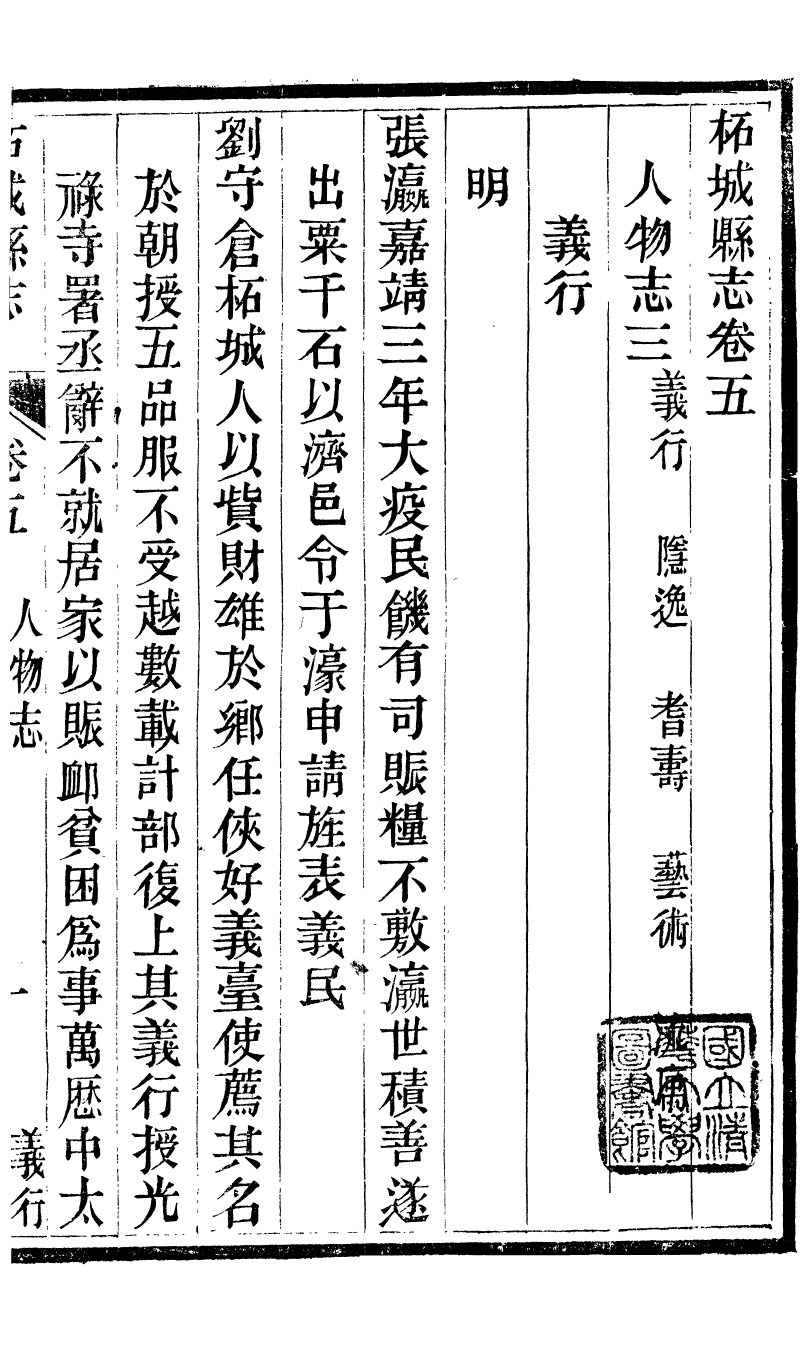 柘城縣志卷五
人物志三 義行 隱逸 耆壽 藝術
義行
明
張瀛嘉靖三年大疫民饑有司賑糧不敷瀛世積善遂
出粟千石以濟邑令于濠申請旌表義民
劉守倉柘城人以貲財雄於鄉任俠好義臺使薦其名
於朝授五品服不受越數載計部復上其義行授光
祿寺署丞辭不就居家以賑卹貧困爲事萬厯中太
柘城縣志 卷五 人物志 一 義行